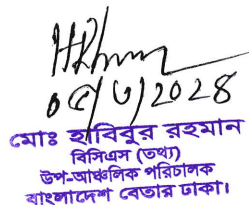 ০৫/৬/2028
মোঃ হাবিবুর রহমান
বিসিএস (তথ্য)
উপ-আঞ্চলিক পরিচালক
বাংলাদেশ বেতার ঢাকা।